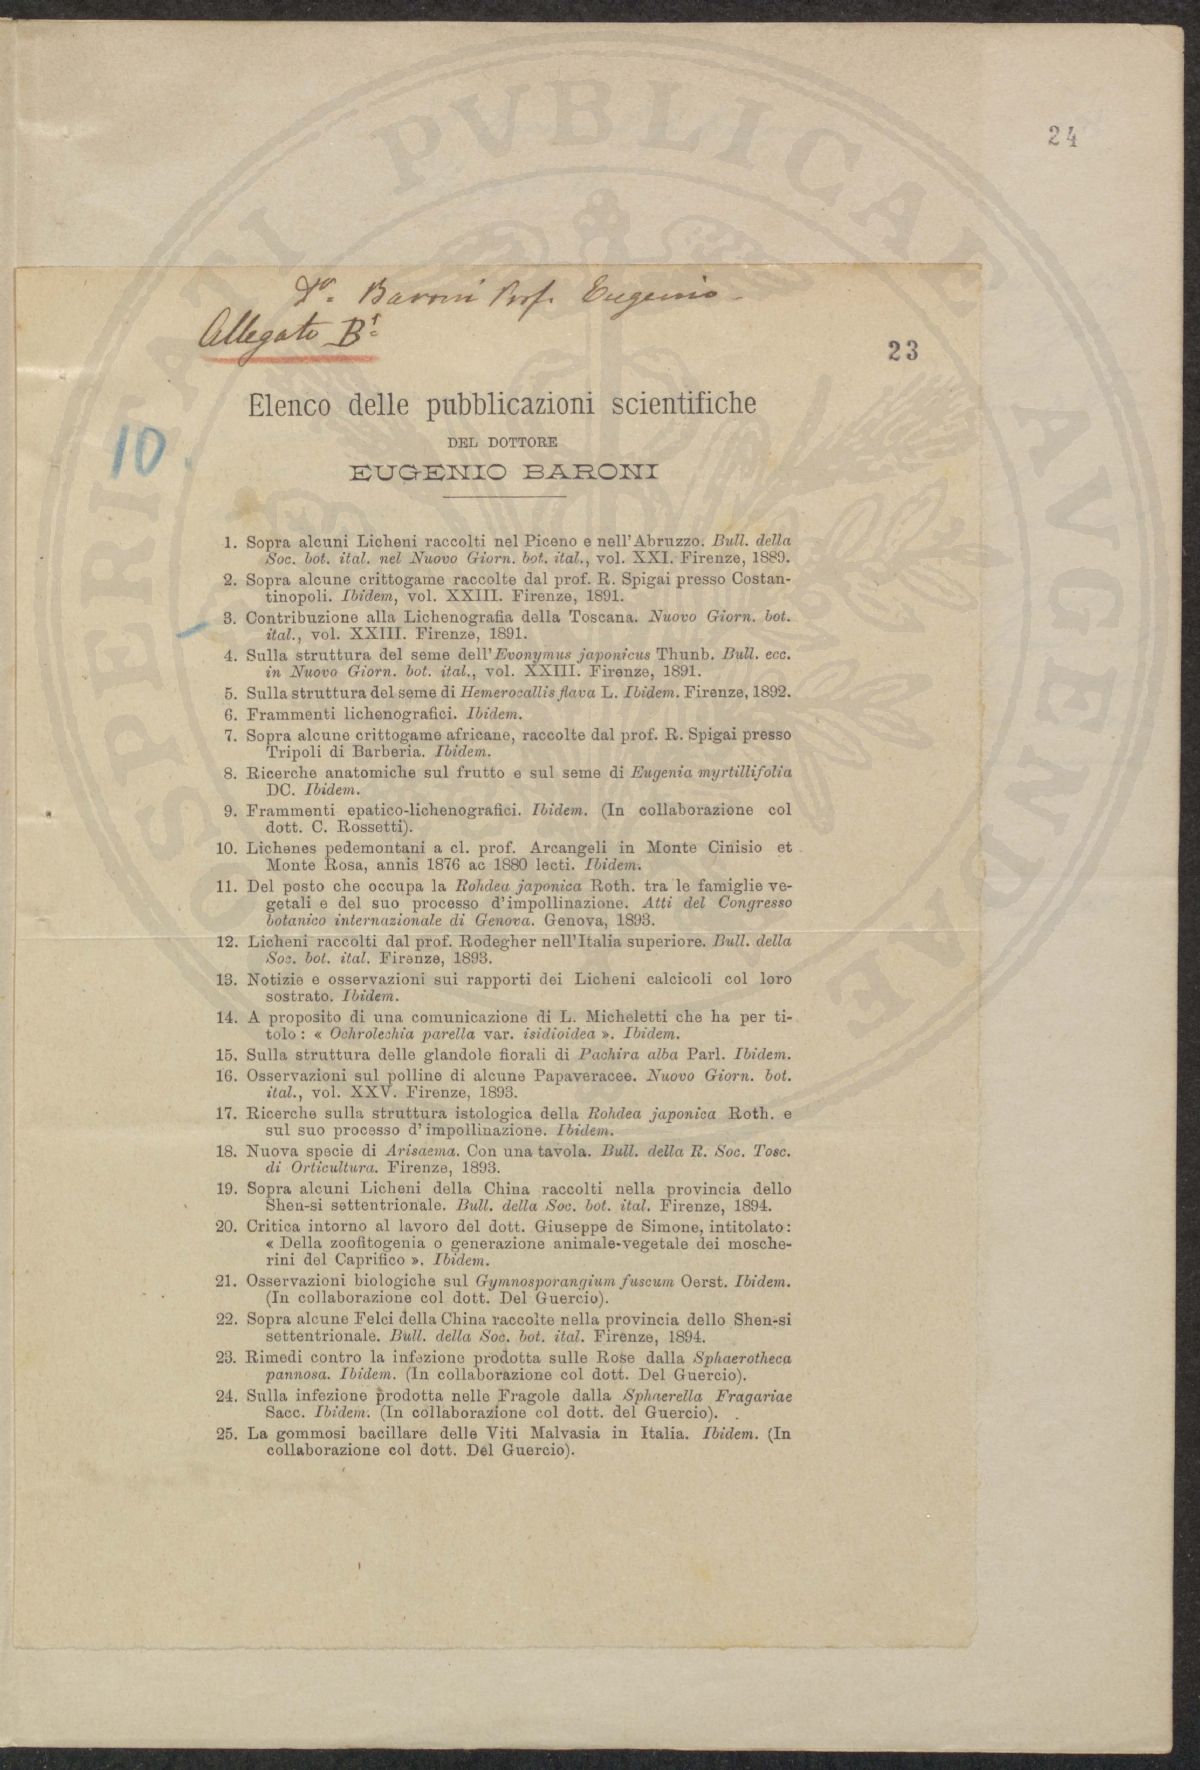 24
Dr. Baroni Prof. Eugenio
Allegato B1
23
10.
Elenco delle pubblicazioni scientifiche
DEL DOTTORE
EUGENIO BARONI
1. Sopra alcuni Licheni raccolti nel Piceno e nell'Abruzzo. Bull. della
Soc. bot. ital. nel Nuovo Giorn. bot. ital., vol. XXI. Firenze, 1889.
2. Sopra alcune crittogame raccolte dal prof. R. Spigai presso Costan-
tinopoli. Ibidem, vol. XXIII. Firenze, 1891.
3. Contribuzione alla Lichenografia della Toscana. Nuovo Giorn. bot.
ital., vol. XXIII. Firenze, 1891.
4. Sulla struttura del seme dell'Evonymus japonicus Thunb. Bull. ecc.
in Nuovo Giorn. bot. ital., vol. XXIII. Firenze, 1891.
5. Sulla struttura del seme di Hemerocallis flava L. Ibidem. Firenze, 1892.
6. Frammenti lichenografici. Ibidem.
7. Sopra alcune crittogame africane, raccolte dal prof. R. Spigai presso
Tripoli di Barberia. Ibidem.
8. Ricerche anatomiche sul frutto e sul seme di Eugenia myrtillifolia
DC. Ibidem.
9. Frammenti epatico-lichenografici. Ibidem. (In collaborazione col
dott. C. Rossetti).
10. Lichenes pedemontani a cl. prof. Arcangeli in Monte Cinisio et
Monte Rosa, annis 1876 ac 1880 lecti. Ibidem.
11. Del posto che occupa la Rohdea japonica Roth. tra le famiglie ve-
getali e del suo processo d'impollinazione. Atti del Congresso
botanico internazionale di Genova. Genova, 1893.
12. Licheni raccolti dal prof. Rodegher nell'Italia superiore. Bull. della
Soc. bot. ital. Firenze, 1893.
13. Notizie e osservazioni sui rapporti dei Licheni calcicoli col loro
sostrato. Ibidem.
14. A proposito di una comunicazione di L. Micheletti che ha per ti-
tolo: « Ochrolechia parella var. isidioidea ». Ibidem.
15. Sulla struttura delle glandole fiorali di Pachira alba Parl. Ibidem.
16. Osservazioni sul polline di alcune Papaveracee. Nuovo Giorn. bot.
ital., vol. XXV. Firenze, 1893.
17. Ricerche sulla struttura istologica della Rohdea japonica Roth. e
sul suo processo d'impollinazione. Ibidem.
18. Nuova specie di Arisaema. Con una tavola. Bull. della R. Soc. Tosc.
di Orticultura. Firenze, 1893.
19. Sopra alcuni Licheni della China raccolti nella provincia dello
Shen-si settentrionale. Bull. della Soc. bot. ital. Firenze, 1894.
20. Critica intorno al lavoro del dott. Giuseppe de Simone, intitolato:
« Della zoofitogenia o generazione animale-vegetale dei mosche-
rini del Caprifico ». Ibidem.
21. Osservazioni biologiche sul Gymnosporangium fuscum Oerst. Ibidem.
(In collaborazione col dott. Del Guercio).
22. Sopra alcune Felci della China raccolte nella provincia dello Shen-si
settentrionale. Bull. della Soc. bot. ital. Firenze, 1894.
23. Rimedi contro la infezione prodotta sulle Rose dalla Sphaerotheca
pannosa. Ibidem. (In collaborazione col dott. Del Guercio).
24. Sulla infezione prodotta nelle Fragole dalla Sphaerella Fragariae
Sacc. Ibidem. (In collaborazione col dott. del Guercio).
25. La gommosi bacillare delle Viti Malvasia in Italia. Ibidem. (In
collaborazione col dott. Del Guercio).
PROSPERITATI PVBLICAE AVGENDAE